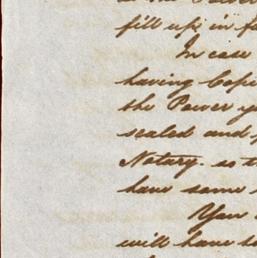 fill up, in f
In case
having Copi
the Power y
sealed and
Notary. so t
have same
You
will have t